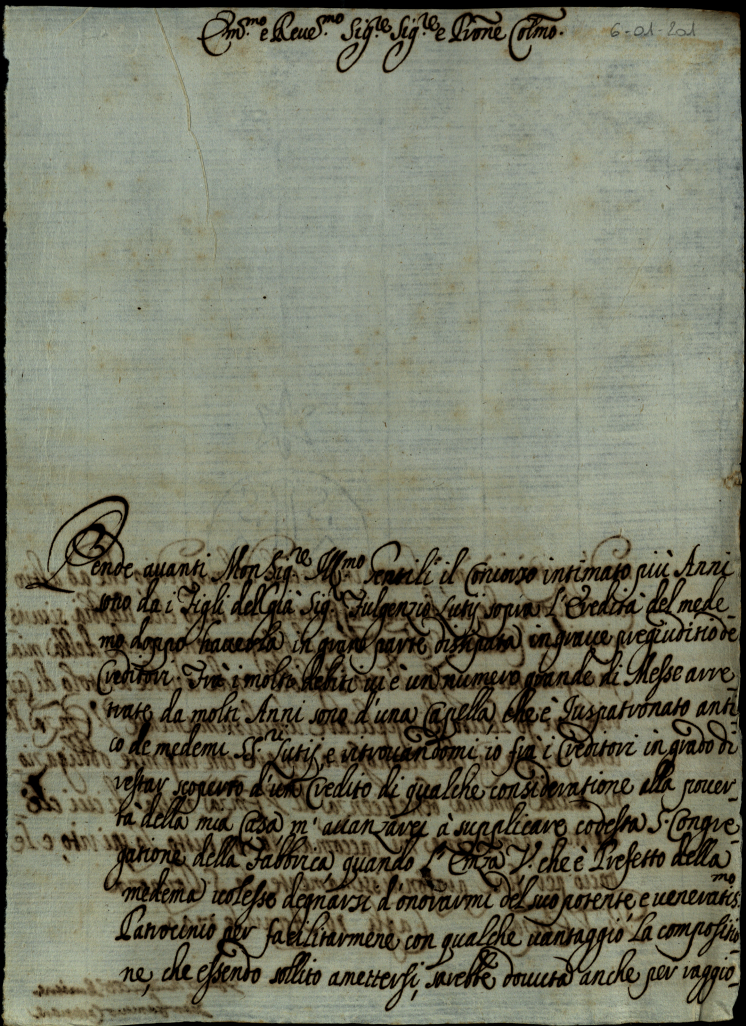 Em.mo e Reue.mo Sig.re Sig.re e Prone Colmo.
6-01-201
Pende auanti MonSig.re Ill.mo Gentili il Concorso intimato più Anni
sono da i Figli del già Sig.r Fulgenzio sopra L'Eredità del mede-
mo doppo hauerla in gran parte dissipata in graue pregiuditio de
Creditori. Frà i molti debiti ui è un numero grande di Messe arre-
trate da molti Anni sono d'una Capella, che è Juspatronato anti-
co de medemi SS.ri e ritrouandomi io frà i Creditori in grado di
restar scoperto d'un Credito di qualche consideratione alla pouer-
tà della mia Casa m'auanzarei à supplicare codesta S. Congre-
gatione della Fabbrica, quando L'Em̃a V. che è Prefetto della
medema uolesse degnarsi d'onorarmi del suo potente, e ueneratis.mo
Patrocinio per facilitarmene con qualche uantaggio La compositio-
ne, che essendo sollito amettersi, sarebbe douuta anche per raggio-